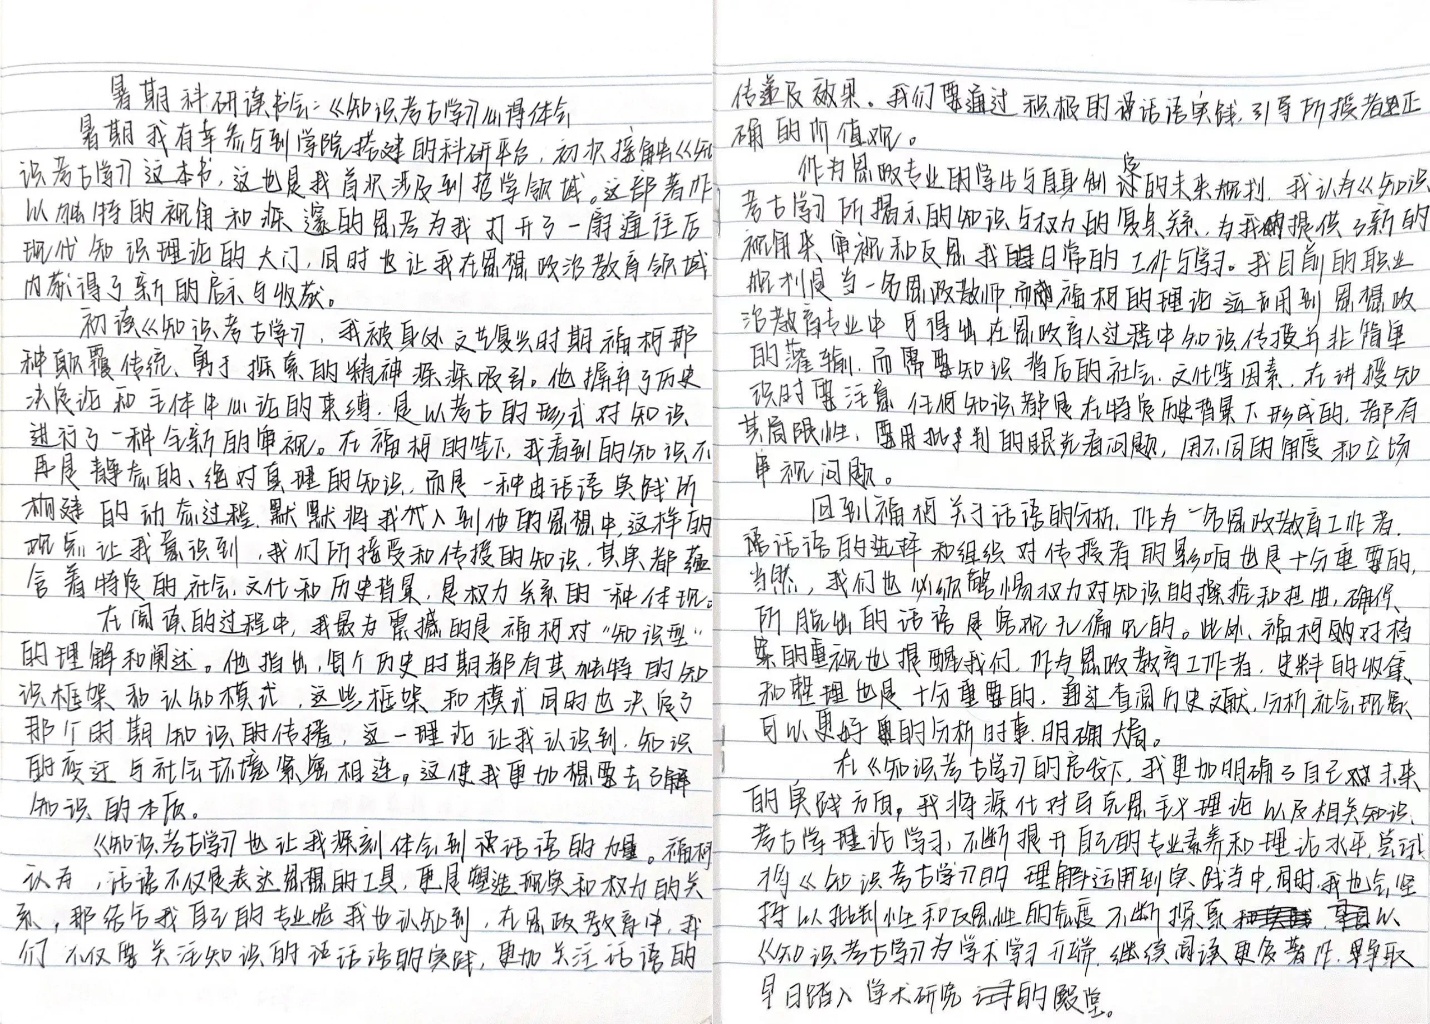 暑期科研读书会：《知识考古学》心得体会
暑期我有幸参与到学院搭建的科研平台，初次接触《知
识考古学》这本书，这也是我首次涉及到哲学领域。这部著作
以独特的视角和深邃的思考为我打开了一扇通往后
现代知识理论的大门，同时也让我在思想政治教育领域
内获得了新的启示与收获。
初读《知识考古学》，我被身处文艺复兴时期福柯那
种颠覆传统、勇于探索的精神深深吸引。他摒弃了历史
决定论和主体中心论的束缚，是以考古的形式对知识
进行了一种全新的审视。在福柯的笔下，我看到的知识不
再是静态的、绝对真理的知识，而是一种由话语实践所
构建的动态过程，默默将我代入到他的思想中，这样的
观点让我意识到，我们所接受和传授的知识，其实都蕴
含着特定的社会、文化和历史背景，是权力关系的一种体现。
在阅读的过程中，我最为震撼的是福柯对“知识型”
的理解和阐述。他指出，每个历史时期都有其独特的知
识框架和认知模式，这些框架和模式同时也决定了
那个时期知识的传播，这一理论让我认识到，知识
的变迁与社会环境紧密相连。这使我更加想要去了解
知识的本质。
《知识考古学》也让我深刻体会到话语的力量。福柯
认为，话语不仅是表达思想的工具，更是塑造现实和权力的关
系，那结合我自己的专业呢我也认知到，在思政教育中，我
们不仅要关注知识的话语的实践，更加关注话语的
传递及效果。我们要通过积极的话语实践，引导所授者正
确的价值观。
作为思政专业的学生与自身制定的未来规划，我认为《知识
考古学》所揭示的知识与权力的复杂关系，为我提供了新的
视角来审视和反思我日常的工作与学习。我目前的职业
规划是当一名思政教师，而福柯的理论运用到思想政
治教育专业中可得出在思政育人过程中知识传授并非简单
的灌输，而需要知识背后的社会、文化等因素，在讲授知
识时要注意任何知识都是在特定历史背景下形成的，都有
其局限性，要用批判的眼光看问题，用不同的角度和立场
审视问题。
回到福柯关于话语的分析，作为一名思政教育工作者，
话语的选择和组织对传授者的影响也是十分重要的，
当然，我们也必须警惕权力对知识的操控和扭曲，确保
所脱出的话语是客观无偏见的。此外，福柯对档
案的重视也提醒我们，作为思政教育工作者，史料的收集
和整理也是十分重要的，通过查阅历史文献，分析社会现象
可以更好的分析时事，明确大局。
在《知识考古学》的启发下，我更加明确了自己未来
的实践方向，我将深化对马克思主义理论以及相关知识、
考古学理论学习，不断提升自己的专业素养和理论水平，尝试
将《知识考古学》的理解运用到实践当中，同时，我也会坚
持以批判性和反思性的态度不断探索，以
《知识考古学》为学术学习开端，继续阅读更度著作，争取
早日踏入学术研究的殿堂。